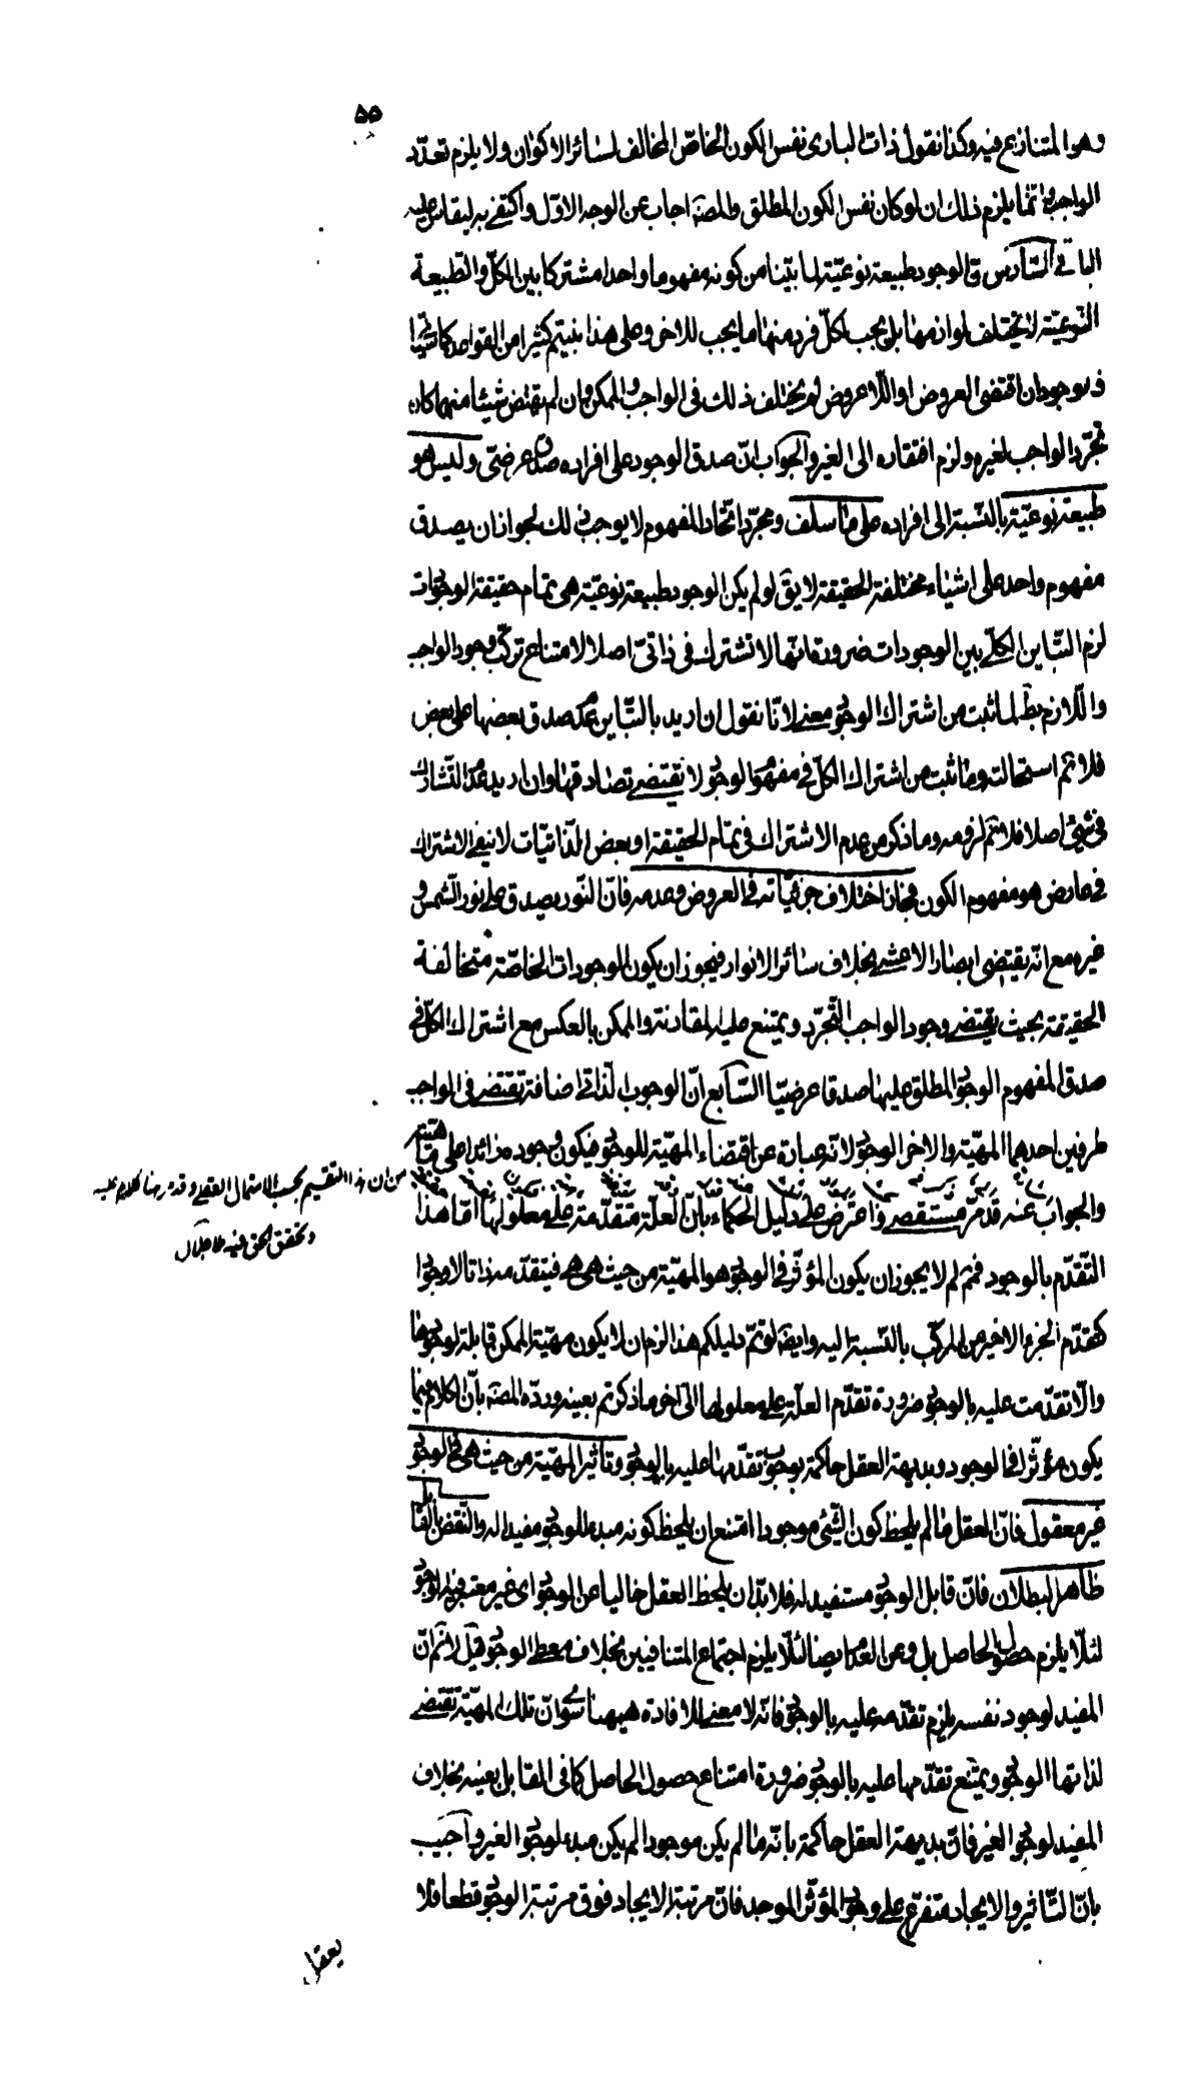 ٥٥
وهو المتنازع فيه وكذا نقول ذات البارى نفس الكون الخاصّ المخالف لسائر الاكوان ولا يلزم تعدّد
الواجب وانّما يلزم ذلك ان لو كان نفس الكون المطلق والمصنّف اجاب عن الوجه الاوّل واكتفى به ليقاس عليه
الباقى السّادس انّ الوجود طبيعة نوعيّة لما بيّنا من كونه مفهوما واحدا مشتركا بين الكلّ والطّبيعة
النّوعيّة لا يختلف لوازمها بل يجب لكلّ فرد منها ما يجب للاخر وعلى هذا بنيتم كثيرا من القواعد كما سيأتى
فالوجود ان اقتضى العروض او اللّاعروض لم يختلف ذلك فى الواجب والممكن وان لم يقتض شيئا منهما كان
تجرّد الواجب لغيره ولزم افتقاره الى الغير والجواب انّ صدق الوجود على افراده صدق عرضىّ وليس هو
طبيعة نوعيّة بالنّسبة الى افراده على ما سلف ومجرّد اتّحاد المفهوم لا يوجب ذلك لجواز ان يصدق
مفهوم واحد على اشياء مختلفة الحقيقة لا يق لو لم يكن الوجود طبيعة نوعيّة هى تمام حقيقة الوجودات
لزم التّباين الكلّى بين الوجودات ضرورة انّها لا تشترك فى ذاتىّ اصلا لامتناع تركّب وجود الواجب
واللّازم بط لما ثبت من اشتراك الوجود معنى لانّا نقول ان اريد بالتّباين عدم صدق بعضها على بعض
فلا نم استحالته وما ثبت من اشتراك الكلّ فى مفهوم الوجود لا يقتضى تصادقها وان اريد عدم التّشارك
فى شئ اصلا فلا نم لزومه وما ذكر من عدم الاشتراك فى تمام الحقيقة او بعض الذّاتيّات لا ينفى الاشتراك
فى عارض هو مفهوم الكون فجاز اختلاف جزئيّاته فى العروض وعدمه فانّ النّور يصدق على نور الشّمس و
غيره مع انّه يقتضى ابصار الاعشى بخلاف سائر الانوار فيجوز ان يكون الوجودات الخاصّة متخالفة
الحقيقة بحيث يقتضى وجود الواجب التّجرّد ويمتنع عليه المقارنة والممكن بالعكس مع اشتراك الكلّ فى
صدق المفهوم الوجود المطلق عليها صدقا عرضيّا السّابع انّ الوجوب الذّاتى اضافة تقتضى فى الواجب
طرفين احدهما المهيّة والاخر الوجود لانّه عبارة عن اقتضاء المهيّة للوجود فيكون وجوده زائدا على مهيّته
والجواب عنه قد مرّ مستقصى واعترض على دليل الحكماء بانّ العلّة متقدّمة على معلولها امّا هذا
التّقدّم بالوجود فمم لم لا يجوز ان يكون المؤثّر فى الوجود هو المهيّة من حيث هى هى فيتقدّمه ذاتا لا وجودا
كتقدّم الجزء الاخير من المركّب بالنّسبة اليه وايضا لو تمّ دليلكم هذا لزم ان لا يكون مهيّة الممكن قابلة لوجودها
والّا تقدّمت عليه بالوجود ضرورة تقدّم العلّة على معلولها الى اخر ما ذكرتم بعينه وردّه المصنّف بانّ الكلام فيما
يكون مؤثّرا فى الوجود وبديهة العقل حاكمة بوجوب تقدّمها عليه بالوجود وتأثير المهيّة من حيث هى فى الوجود
غير معقول فانّ العقل ما لم يلحظ كون الشّئ موجودا امتنع ان يلحظ كونه مبدء للوجود مفيدا له والنّقض بالقابل
ظاهر البطلان فانّ قابل الوجود مستفيد له فلا بدّ ان يلحظ العقل خاليا عن الوجود اى غير معتبر فيه الوجود
لئلّا يلزم حصول الحاصل بل وعن العدم ايضا لئلّا يلزم اجتماع المتنافيين بخلاف معطى الوجود قيل لا نم انّ
المفيد لوجود نفسه يلزم تقدّمه عليه بالوجود فانّه لا معنى للافادة هيهنا سوى انّ تلك المهيّة تقتضى
لذاتها الوجود ويمتنع تقدّمها عليه بالوجود ضرورة امتناع حصول الحاصل كما فى القابل بعينه بخلاف
المفيد لوجود الغير فانّ بديهة العقل حاكمة بانّه ما لم يكن موجودا لم يكن مبدء لوجود الغير واجيب
بانّ التّأثير والايجاد متفرّع على وجود المؤثّر الموجد فانّ مرتبة الايجاد فوق مرتبة الوجود قطعا فلا
يعقل
من ان هذا التقسيم بحسب الاحتمال العقلى وقد مر منا كلام عليه
وتحقق الحق فيه